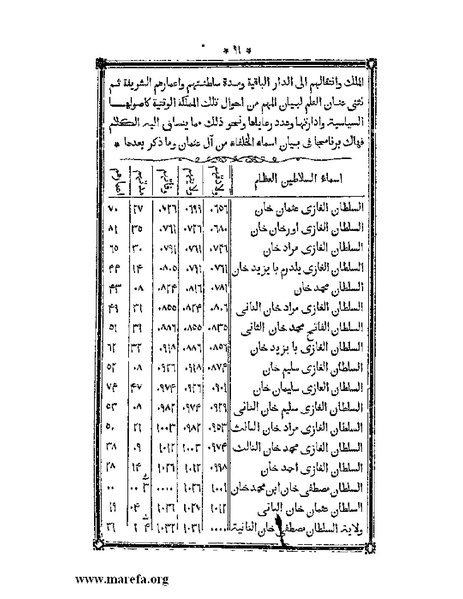 ٩١
الملك وانتقالهم الى الدار الباقية ومدة سلطنتهم واعمارهم الشريفة ثم
نثنى عنان القلم لبيان المهم من احوال تلك المملكة الوقتية كاصولها
السياسية وادارتها وعدد رعاياها ونحو ذلك مما ينساق اليه الكلام
فهاك برنامجا فى بيان اسماء الخلفاء من آل عثمان وما ذكر بعدها
اسماء السلاطين العظام ولادتهم ولايتهم وفاتهم مدتهم اعمارهم
السلطان الغازى عثمان خان ٠٦٥٦ ٠٦٩٩ ٠٧٢٦ ٢٧ ٧٠
السلطان الغازى اورخان خان ٠٦٨٠ ٠٧٢٦ ٠٧٦١ ٣٥ ٨١
السلطان الغازى مراد خان ٠٧٢٦ ٠٧٦١ ٠٧٩١ ٣٠ ٦٥
السلطان الغازى يلدرم بايزيد خان ٠٧٦١ ٠٧٩١ ٠٨٠٥ ١٤ ٤٤
السلطان محمد خان ٠٧٨١ ٠٨١٦ ٠٨٢٤ ٠٨ ٤٣
السلطان الغازى مراد خان الثانى ٠٨٠٦ ٠٨٢٤ ٠٨٥٥ ٣١ ٤٩
السلطان الفاتح محمد خان الثانى ٠٨٣٥ ٠٨٥٥ ٠٨٨٦ ٣١ ٥١
السلطان الغازى بايزيد خان ٠٨٥٦ ٠٨٨٦ ٠٩١٨ ٣٢ ٦٢
السلطان الغازى سليم خان ٠٨٧٤ ٠٩١٨ ٠٩٢٦ ٠٨ ٥٢
السلطان الغازى سليمان خان ٠٩٠١ ٠٩٢٦ ٠٩٧٤ ٤٧ ٧٤
السلطان الغازى سليم خان الثانى ٠٩٢٩ ٠٩٧٤ ٠٩٨٢ ٠٨ ٥٣
السلطان الغازى مراد خان الثالث ٠٩٥٣ ٠٩٨٢ ١٠٠٣ ٢١ ٥٠
السلطان الغازى محمد خان الثالث ٠٩٧٤ ١٠٠٣ ١٠١٢ ٠٩ ٣٨
السلطان الغازى احمد خان ٠٩٩٨ ١٠١٢ ١٠٢٦ ١٤ ٢٨
السلطان مصطفى خان ابن محمد خان ١٠٠١ ١٠٢٦ ٠٠٠٠ ٠٠
السلطان عثمان خان الثانى ١٠١٢ ١٠٢٧ ١٠٣١ ٠٤ ١٩
ولاية السلطان مصطفى خان الثانية ٠٠٠٠ ١٠٣١ ١٠٣٢
www.marefa.org